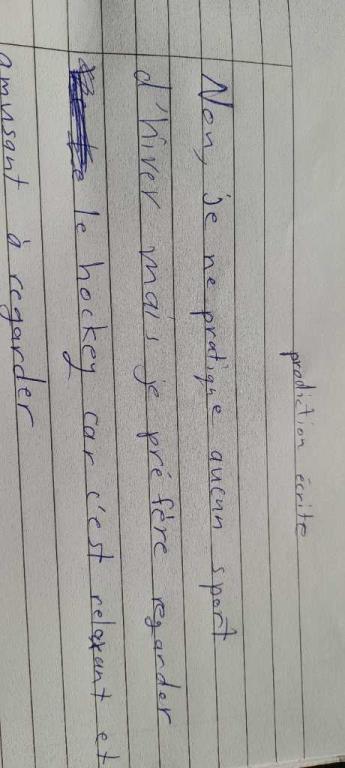 prodiction écrite
Non, je ne pratique aucun sport
d'hiver mais je préfère regarder
le hockey car c'est relaxant et
amusant à regarder